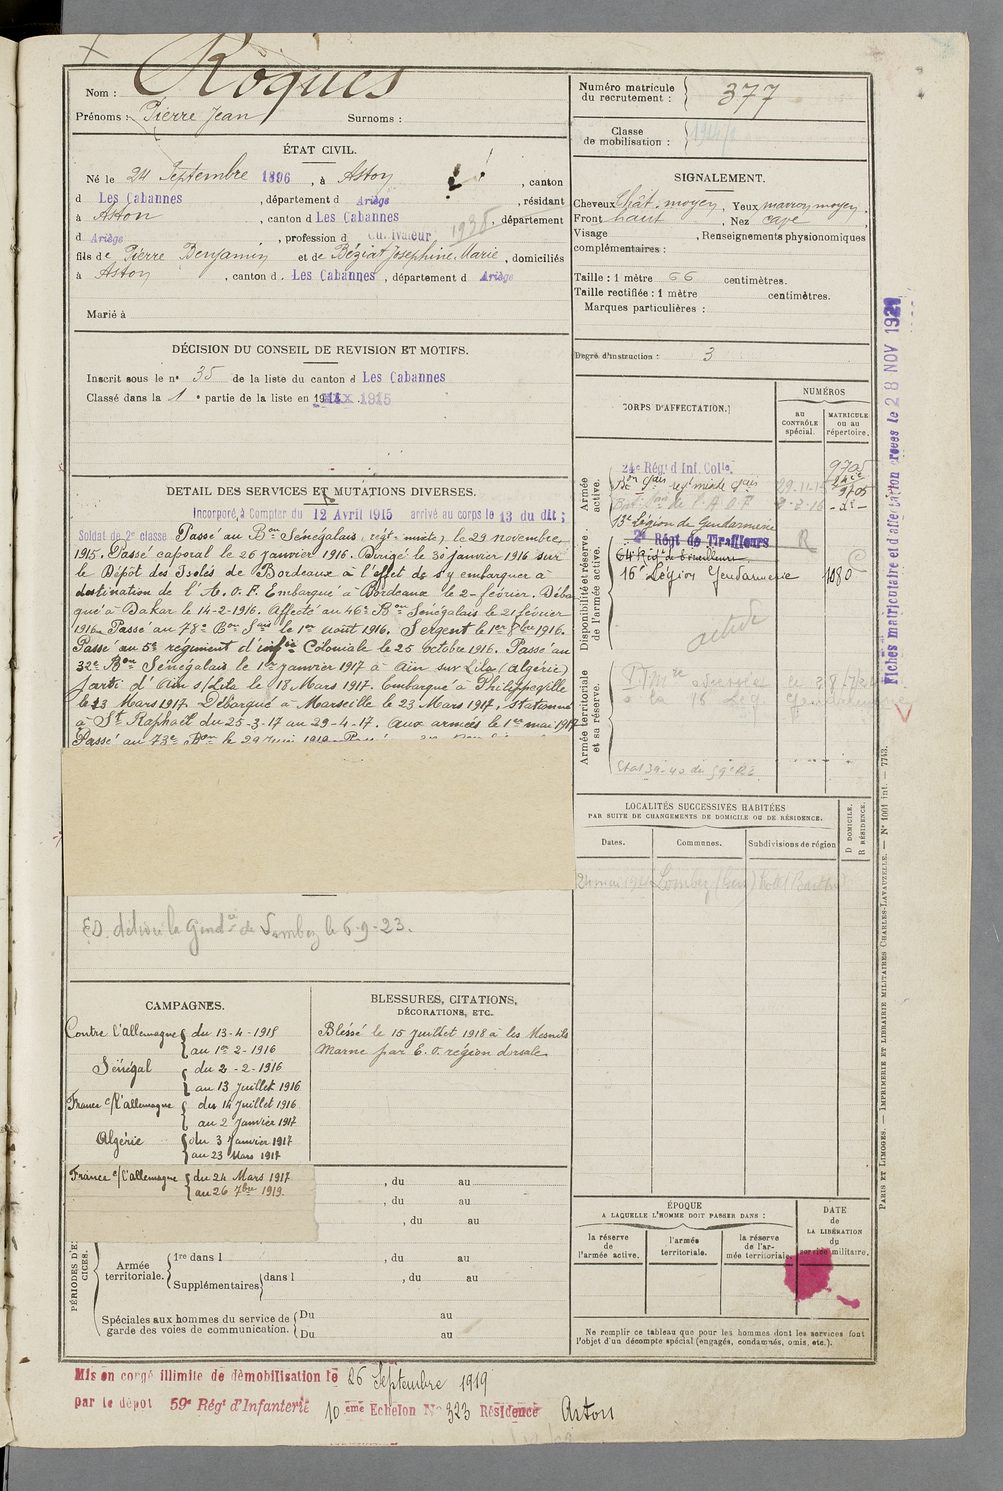 Nom : Roques
Prénoms : Pierre Jean Surnoms :
ÉTAT CIVIL.
Né le 24 Septembre 1896, à Aston, canton
d Les Cabannes, département d Ariège, résidant
à Aston, canton d Les Cabannes, département
d Ariège, profession d Cultivateur 1935
fils de Pierre Benjamin et de Béziat Joséphine Marie, domiciliés
à Aston, canton d. Les Cabannes, département d Ariège
Marié à
DÉCISION DU CONSEIL DE REVISION ET MOTIFS.
Inscrit sous le n° 35 de la liste du canton d Les Cabannes
Classé dans la 1e partie de la liste en 1915
DÉTAIL DES SERVICES ET MUTATIONS DIVERSES.
Incorporé, à Compter du 12 Avril 1915 arrivé au corps le 13 du dit ;
Soldat de 2e classe Passé au Bon Sénégalais (régt mixte) le 29 novembre
1915. Passé caporal le 26 janvier 1916. Dirigé le 30 janvier 1916 sur
le Dépôt des Isolés de Bordeaux à l'effet de s'y embarquer à
destination de l'A. O. F. Embarqué à Bordeaux le 2 février. Débar
qué à Dakar le 14-2-1916. Affecté au 46e Bon Sénégalais le 21 février
1916. Passé au 78e Bon Sais le 1er août 1916. Sergent le 1er 8bre 1916.
Passé au 5e régiment d'infie Coloniale le 25 octobre 1916. Passé au
32e Bon Sénégalais le 1er janvier 1917 à Aïn sur Lila (Algérie)
Parti d'Aïn s/Lila le 18 Mars 1917. Embarqué à Philippeville
le 23 Mars 1917. Débarqué à Marseille le 23 Mars 1917, stationné
à St Raphaël du 25-3-17 au 29-4-17. aux armées le 1er mai 1917
Passé au 73e Bon le 29
ED. délivré la Gendie de Lombez le 6-9-23.
CAMPAGNES.
Contre l'allemagne du 13-4-1915
au 1er 2-1916
Sénégal du 2-2-1916
au 13 Juillet 1916
France c/l'allemagne du 14 Juillet 1916
au 2 Janvier 1917
Algérie du 3 Janvier 1917
au 23 Mars 1917
France c/l'allemagne du 24 Mars 1917
au 26 7bre 1919.
BLESSURES, CITATIONS,
DÉCORATIONS, ETC.
Bléssé le 15 juillet 1918 à les Mesnils
Marne par E. O. région dorsale
, du au
, du au
, du au
PÉRIODES D'EXERCICES.
Armée
territoriale.
1re dans l , du au
Supplémentaires dans l , du au
Spéciales aux hommes du service de
garde des voies de communication.
Du au
Du au
Mis en congé illimité de démobilisation le 26 Septembre 1919
par le dépôt 59e Régt d'Infanterie 10 ème Echelon N° 323 Résidence Aston
Numéro matricule
du recrutement : 377
Classe
de mobilisation :
SIGNALEMENT.
Cheveux Chât. moyen, Yeux marron moyen.
Front haut, Nez cave,
Visage , Renseignements physionomiques
complémentaires :
Taille : 1 mètre 66 centimètres.
Taille rectifiée : 1 mètre centimètres.
Marques particulières :
Degré d'instruction : 3
CORPS D'AFFECTATION.
NUMÉROS
AU
CONTRÔLE
spécial.
MATRICULE
OU AU
répertoire.
Armée
active.
24e Régt d'Inf. Colle. 9705
Bon Sais régt mixte Sais 29.11.15 9705
Bat. Sais de l'A.O.F 2-2-16 - d° -
Disponibilité et réserve
de l'armée active.
13e Légion de Gendarmerie
2e Régt de Tirailleurs R
16e Légion Gendarmerie 1180
Armée territoriale
et sa réserve.
à la 16 Leg Gendarmerie
LOCALITÉS SUCCESSIVES HABITÉES
PAR SUITE DE CHANGEMENTS DE DOMICILE OU DE RÉSIDENCE.
Dates. Communes. Subdivisions de région
D DOMICILE.
R RÉSIDENCE.
Lombez (Gers)
ÉPOQUE
A LAQUELLE L'HOMME DOIT PASSER DANS :
la réserve
de
l'armée active.
l'armée
territoriale.
la réserve
de l'ar-
mée territoriale.
DATE
de
LA LIBÉRATION
du
service militaire.
Ne remplir ce tableau que pour les hommes dont les services font
l'objet d'un décompte spécial (engagés, condamnés, omis, etc.).
Fiches matriculaire et d'affectation créées le 28 NOV 1921
PARIS ET LIMOGES. — IMPRIMERIE ET LIBRAIRIE MILITAIRES CHARLES-LAVAUZELLE. — N° 1001 int. — 7743.